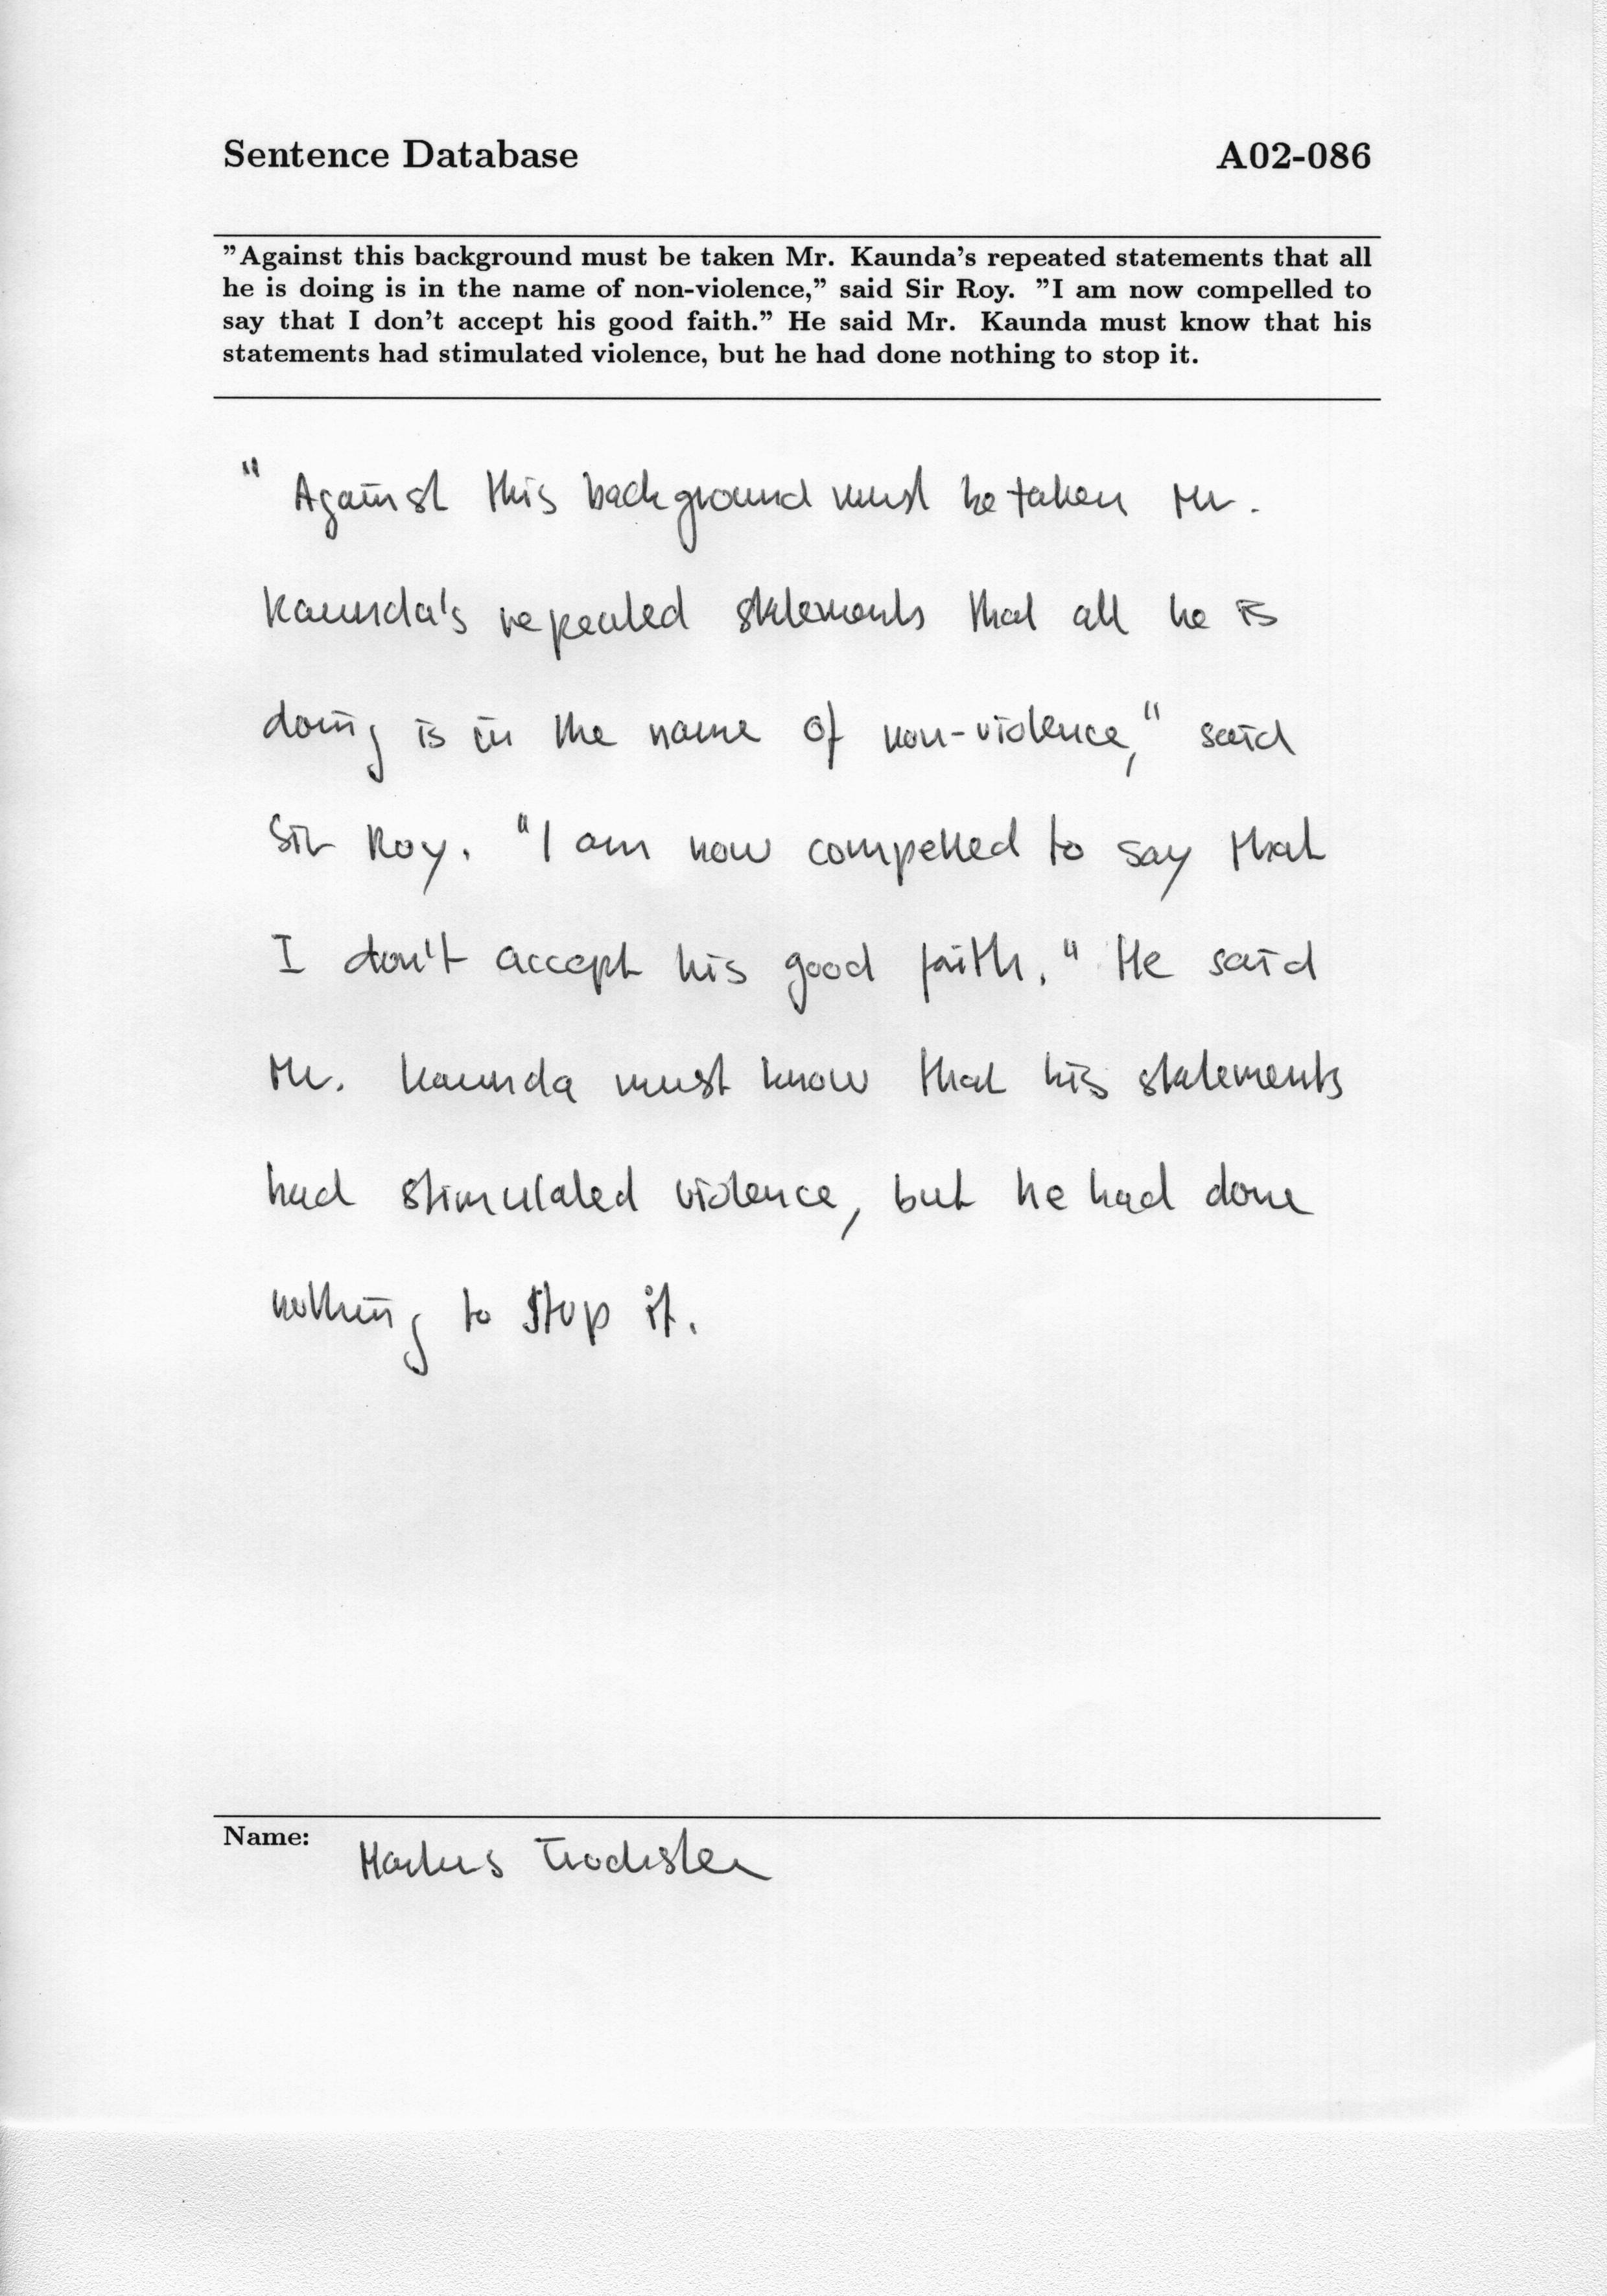 Sentence Database A02-086
"Against this background must be taken Mr. Kaunda's repeated statements that all
he is doing is in the name of non-violence," said Sir Roy. "I am now compelled to
say that I don't accept his good faith." He said Mr. Kaunda must know that his
statements had stimulated violence, but he had done nothing to stop it.
" Against this background must be taken Mr.
Kaunda's repeated statements that all he is
doing is in the name of non-violence," said
Sir Roy. "I am now compelled to say that
I don't accept his good faith." He said
Mr. Kaunda must know that his statements
had stimulated violence, but he had done
nothing to stop it.
Name: Markus